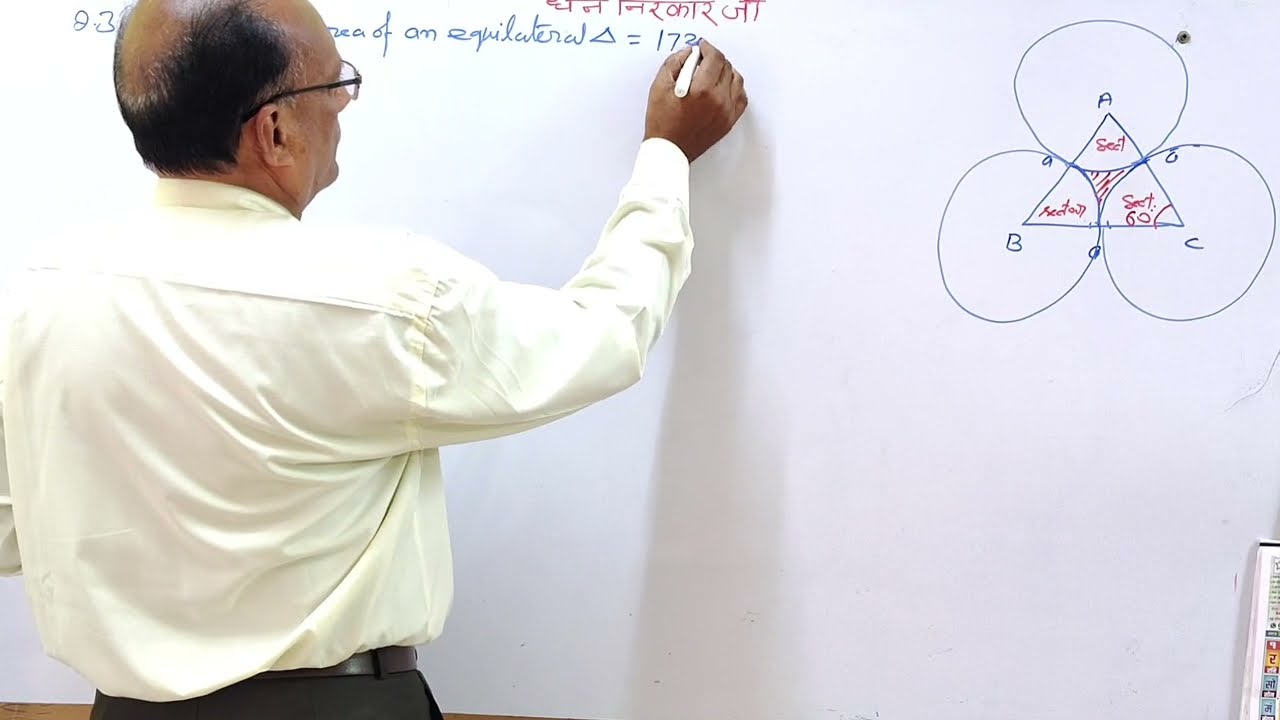 धन निरंकार जी
Q.3 rea of an equilateral Δ = 173
A
Sect
B
sector
Sect.
60°
C